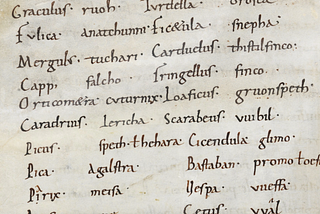 Graculus· ruoh· Turdella·
Fulica· anatchunni· Ficedula· snepha·
Mergulus· tuchari· Carduelus· thistilfinco·
Cappi falcho· Fringellus· finco·
Orticometra cuturnix· Loaficus· gruonspeth·
Caradrius· lericha· Scarabeus· uuibil·
Picus· speth· thehara· Cicendula glimo·
Pica· agalstra· Bastaban·
Parix· meisa· Uespa· uueffa·
Cetus·